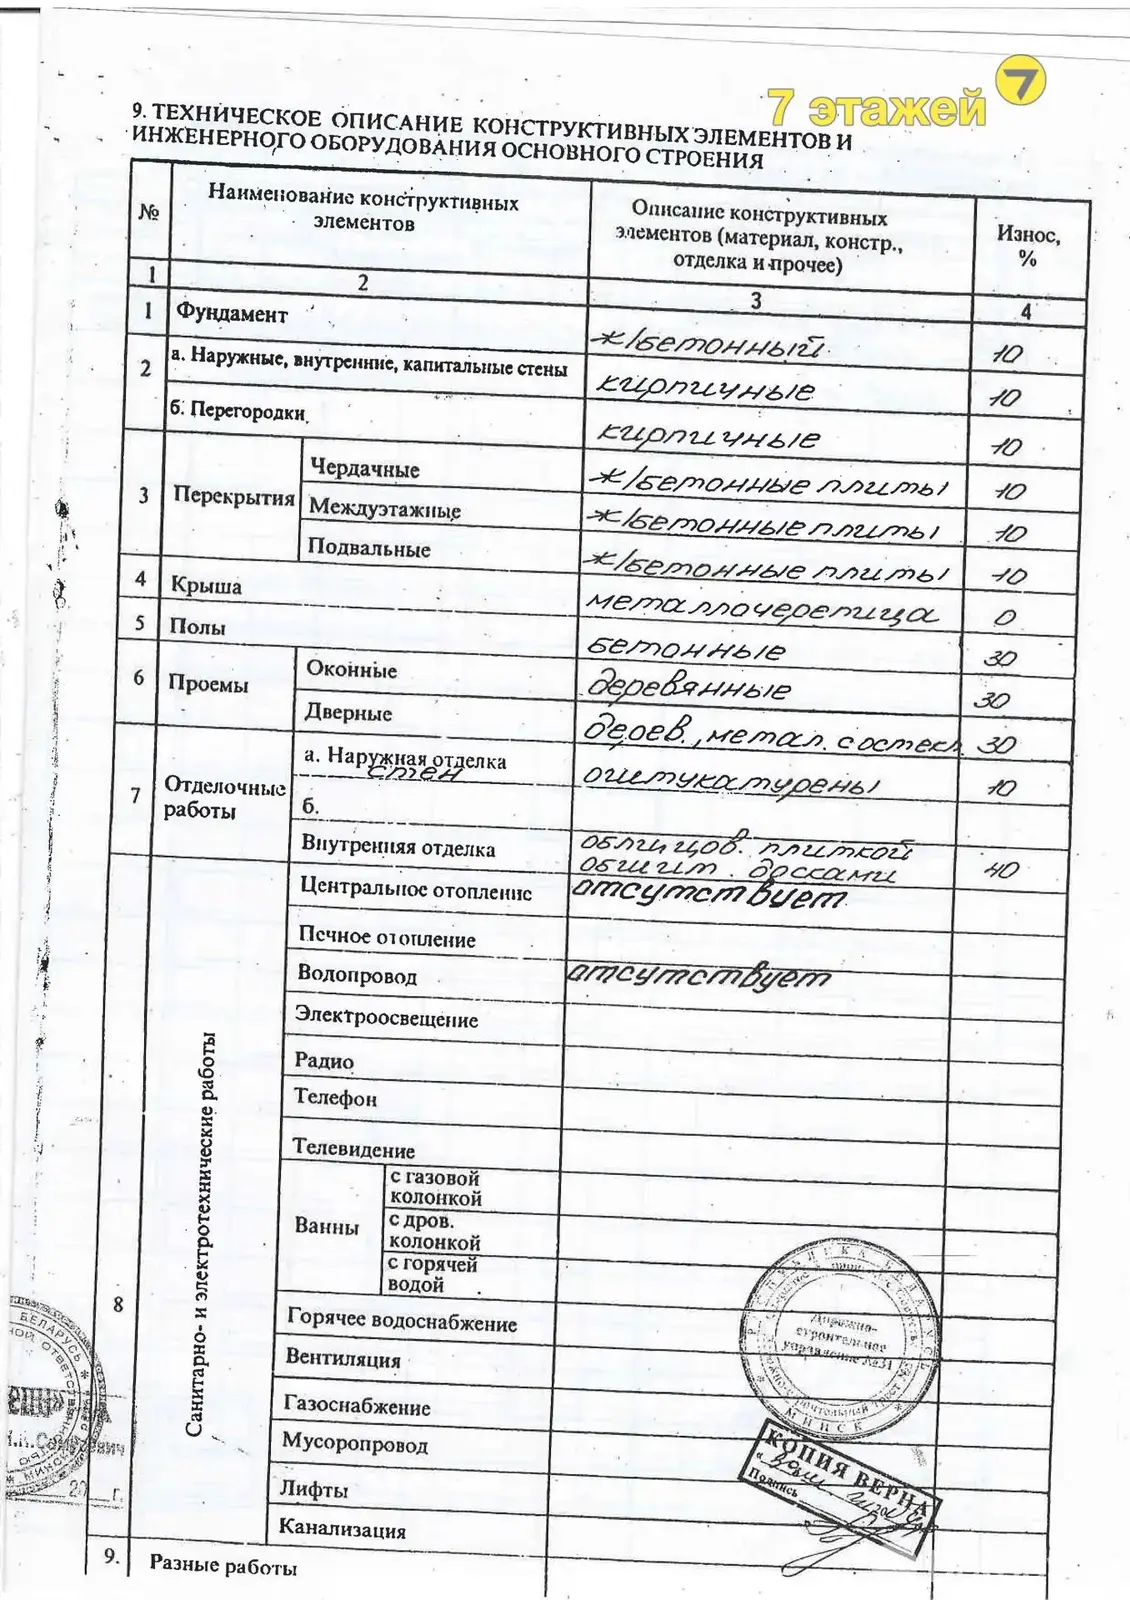 7 этажей 7
9. ТЕХНИЧЕСКОЕ ОПИСАНИЕ КОНСТРУКТИВНЫХ ЭЛЕМЕНТОВ И
ИНЖЕНЕРНОГО ОБОРУДОВАНИЯ ОСНОВНОГО СТРОЕНИЯ
№ Наименование конструктивных элементов Описание конструктивных элементов (материал, констр., отделка и прочее) Износ, %
1 2 3 4
1 Фундамент ж/бетонный 10
2 а. Наружные, внутренние, капитальные стены кирпичные 10
б. Перегородки кирпичные 10
3 Перекрытия Чердачные ж/бетонные плиты 10
Междуэтажные ж/бетонные плиты 10
Подвальные ж/бетонные плиты 10
4 Крыша металлочерепица 0
5 Полы бетонные 30
6 Проемы Оконные деревянные 30
Дверные дерев., метал. с остекл. 30
7 Отделочные работы а. Наружная отделка стен оштукатурены 10
б.
Внутренняя отделка облицов. плиткой
обшит. досками 40
8 Санитарно- и электротехнические работы
Центральное отопление отсутствует
Печное отопление
Водопровод отсутствует
Электроосвещение
Радио
Телефон
Телевидение
Ванны с газовой колонкой
с дров. колонкой
с горячей водой
Горячее водоснабжение
Вентиляция
Газоснабжение
Мусоропровод
Лифты
Канализация
9. Разные работы
РЕСПУБЛИКА БЕЛАРУСЬ
Дорожно-
строительное
управление №31
МИНСК
КОПИЯ ВЕРНА
Подпись
БЕЛАРУСЬ
20 г.